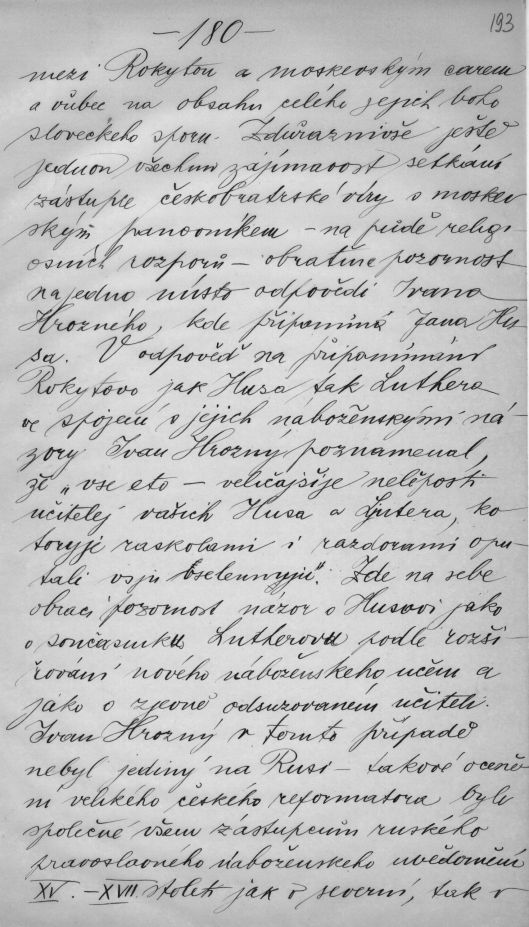 193
—180—
mezi Rokytou a moskevským carem
a vůbec na obsahu celého jejich boho
sloveckého sporu. Zdůraznivše ještě
jednou všechnu zajímavost setkání
zástupce českobratrské víry s moskev
ským panovníkem – na půdě religi
osních rozporů – obraťme pozornost
na jedno místo odpovědi Ivana
Hrozného, kde připomíná Jana Hu
sa. V odpověď na připomínání
Rokytovo jak Husa tak Luthera
ve spojení s jejich naboženskými ná-
zory Ivan Hrozný poznamenal,
že „vse eto – veličajšije nelěposti
učitelej vašich Husa a Ljutera, ko
toryje raskolami i razdorami opu
tali vsju vselennuju". Zde na sebe
obrací pozornost názor o Husovi jako
o současníku Lutherovu podle rozši
řování nového náboženského učení a
jako o zjevně odsuzovaném učiteli.
Ivan Hrozný v tomto případě
nebyl jediný na Rusi – takové oceně
ní velikého českého reformatora bylo
společné všem zástupcům ruského
pravoslavného náboženského uvědomění
XV. – XVII. století jak v severní, tak v